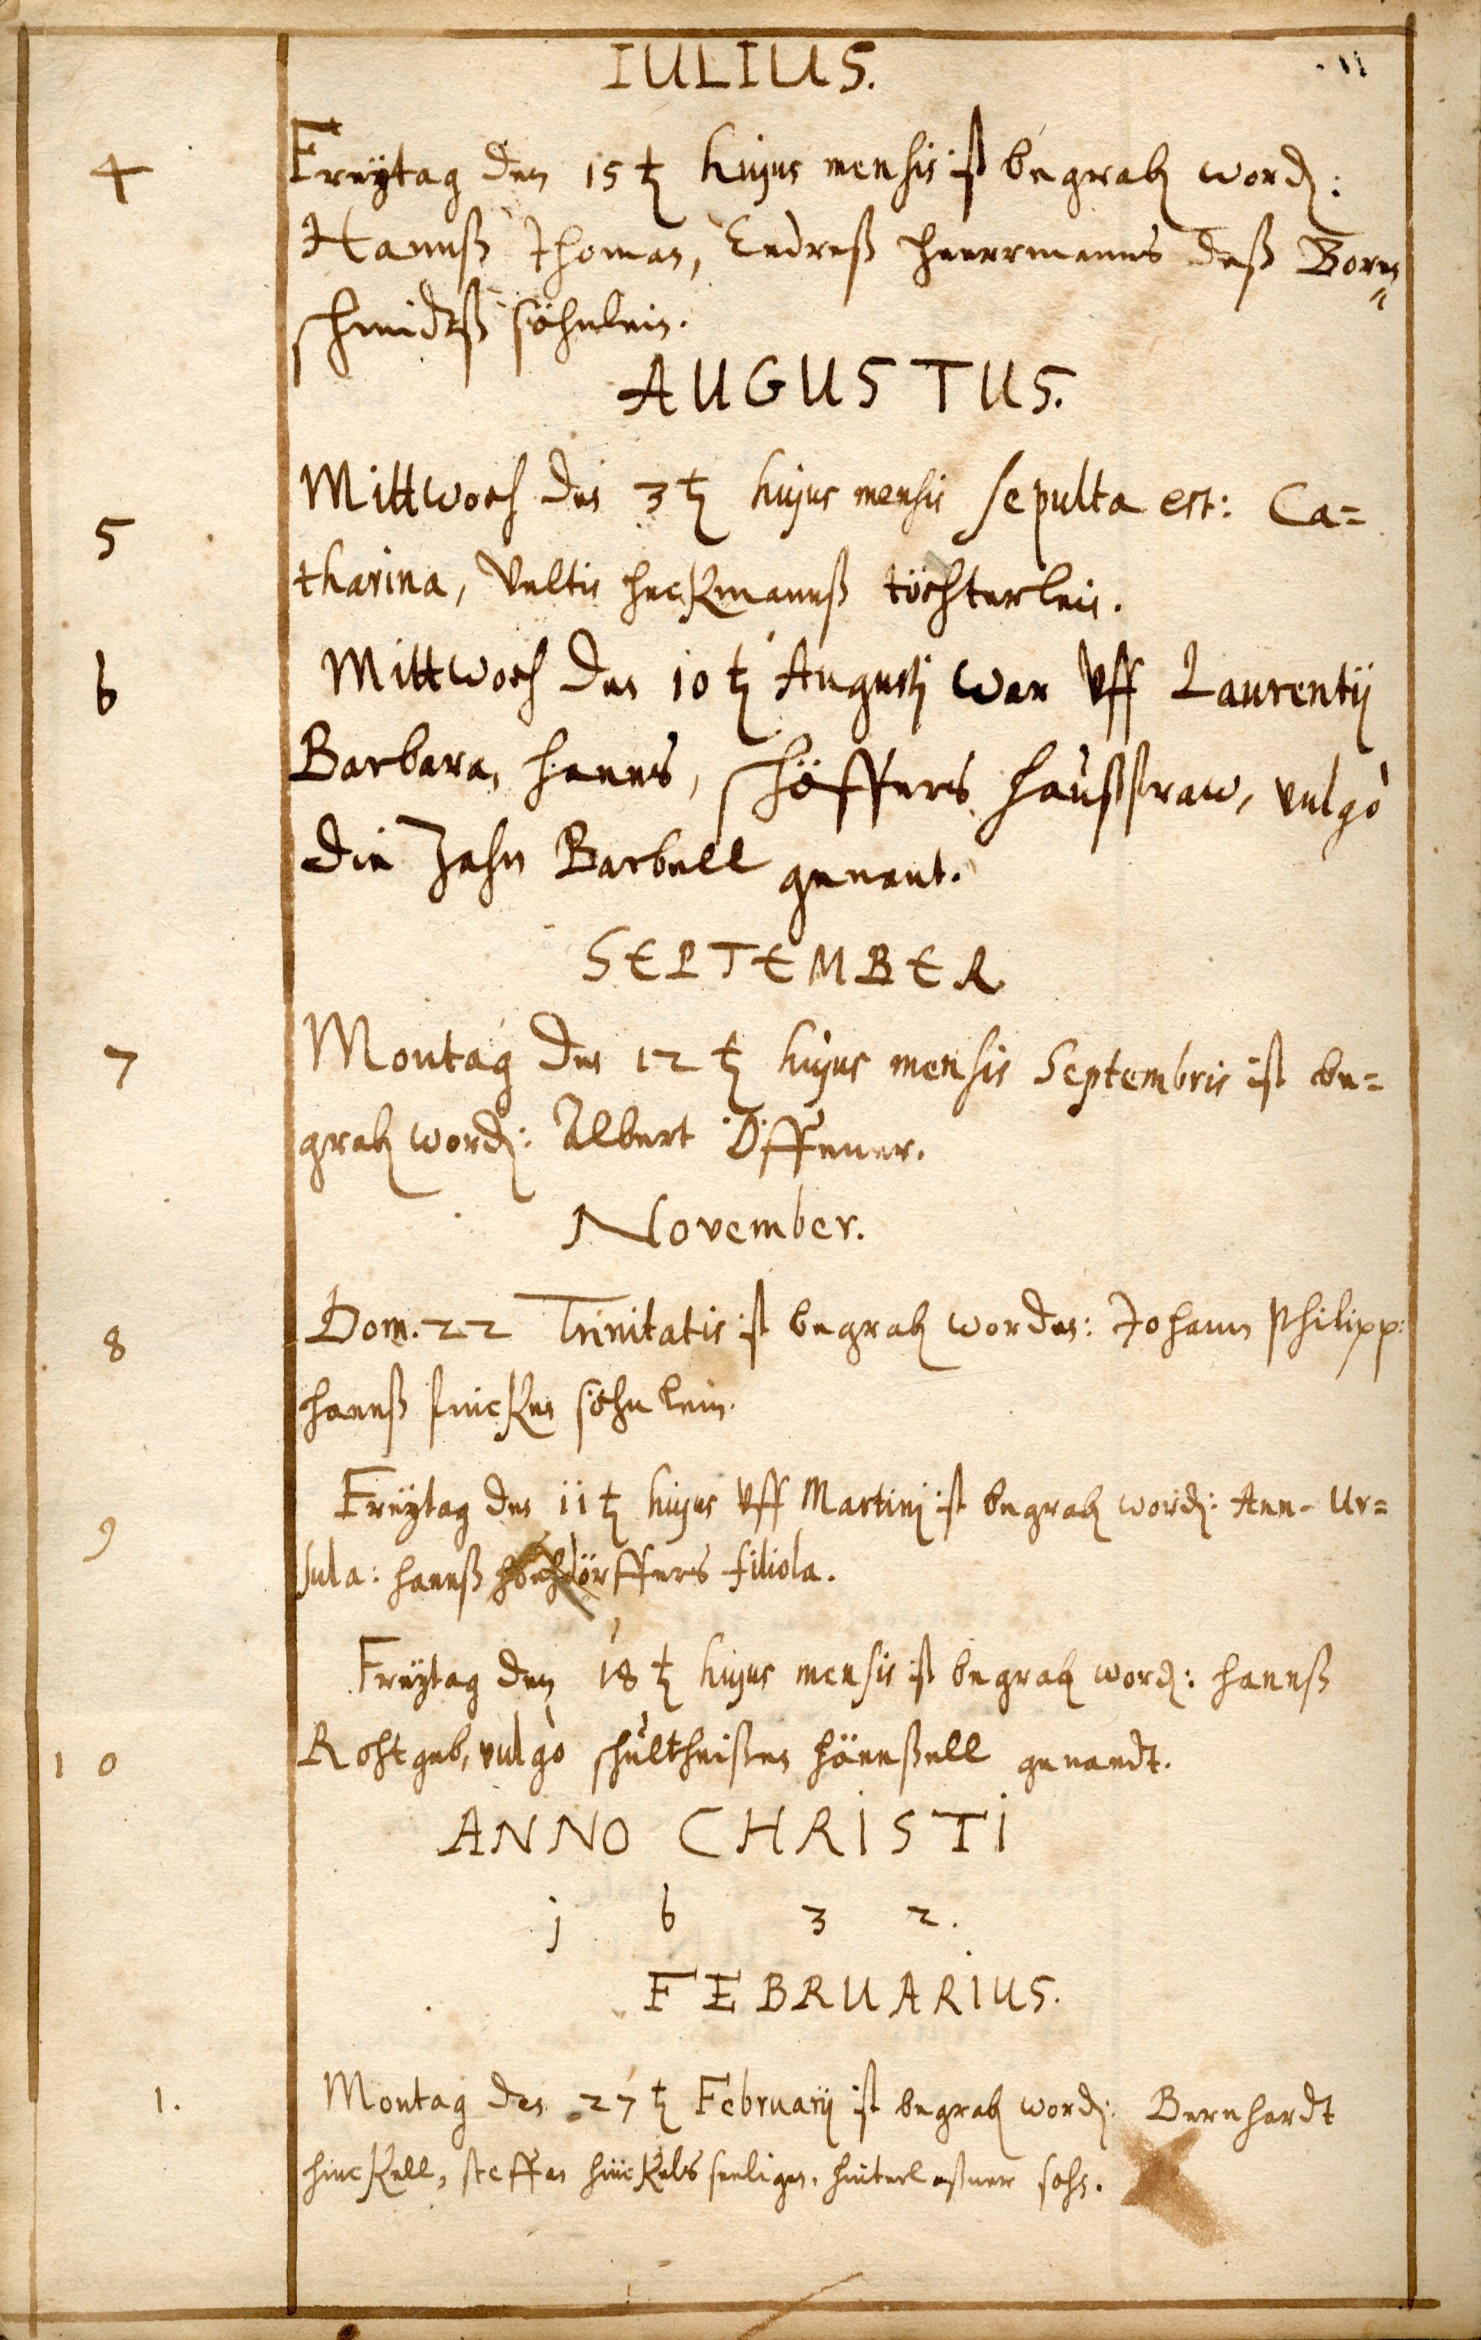 IULIUS.
11
4 Freÿtag den 15t hujus mensis ist begrab word:
Hannß Thoman, Endreß Heerrmanns deß Born=
schmidtß söhnlein.
AUGUSTUS.
5 Mittwoch den 3t hujus mensis sepulta est: Ca=
tharina, Veltin Heckmannß töchterlein.
6 Mittwoch den 10t Augusti war vff Laurentij
Barbara, Hanns, schöffers haußfraw, vulgò
die Zahn Barbell genant.
SEPTEMBER
7 Montag den 12t hujus mensis Septembris ist be=
grab word: Albert Öffener.
November.
8 Dom. 22 Trinitatis ist begrab worden: Johann Philipp:
Hannß finckes söhnlein.
9 Freÿtag den 11t hujus vff Martinj ist begrab word: Ann- Ur=
sula: Hannß Hochdörffers filiola.
Freÿtag den 18t hujus mensis ist begrab word: Hannß
10 Rohtgeb, vulgò schultheißen Hänßell genandt.
ANNO CHRISTI
j 6 3 2.
FEBRUARIUS.
1. Montag den 27t Februarij ist begrab word: Bernhardt
Hinckell, Steffen Hinckels seeligen, hinterlaßner sohn.